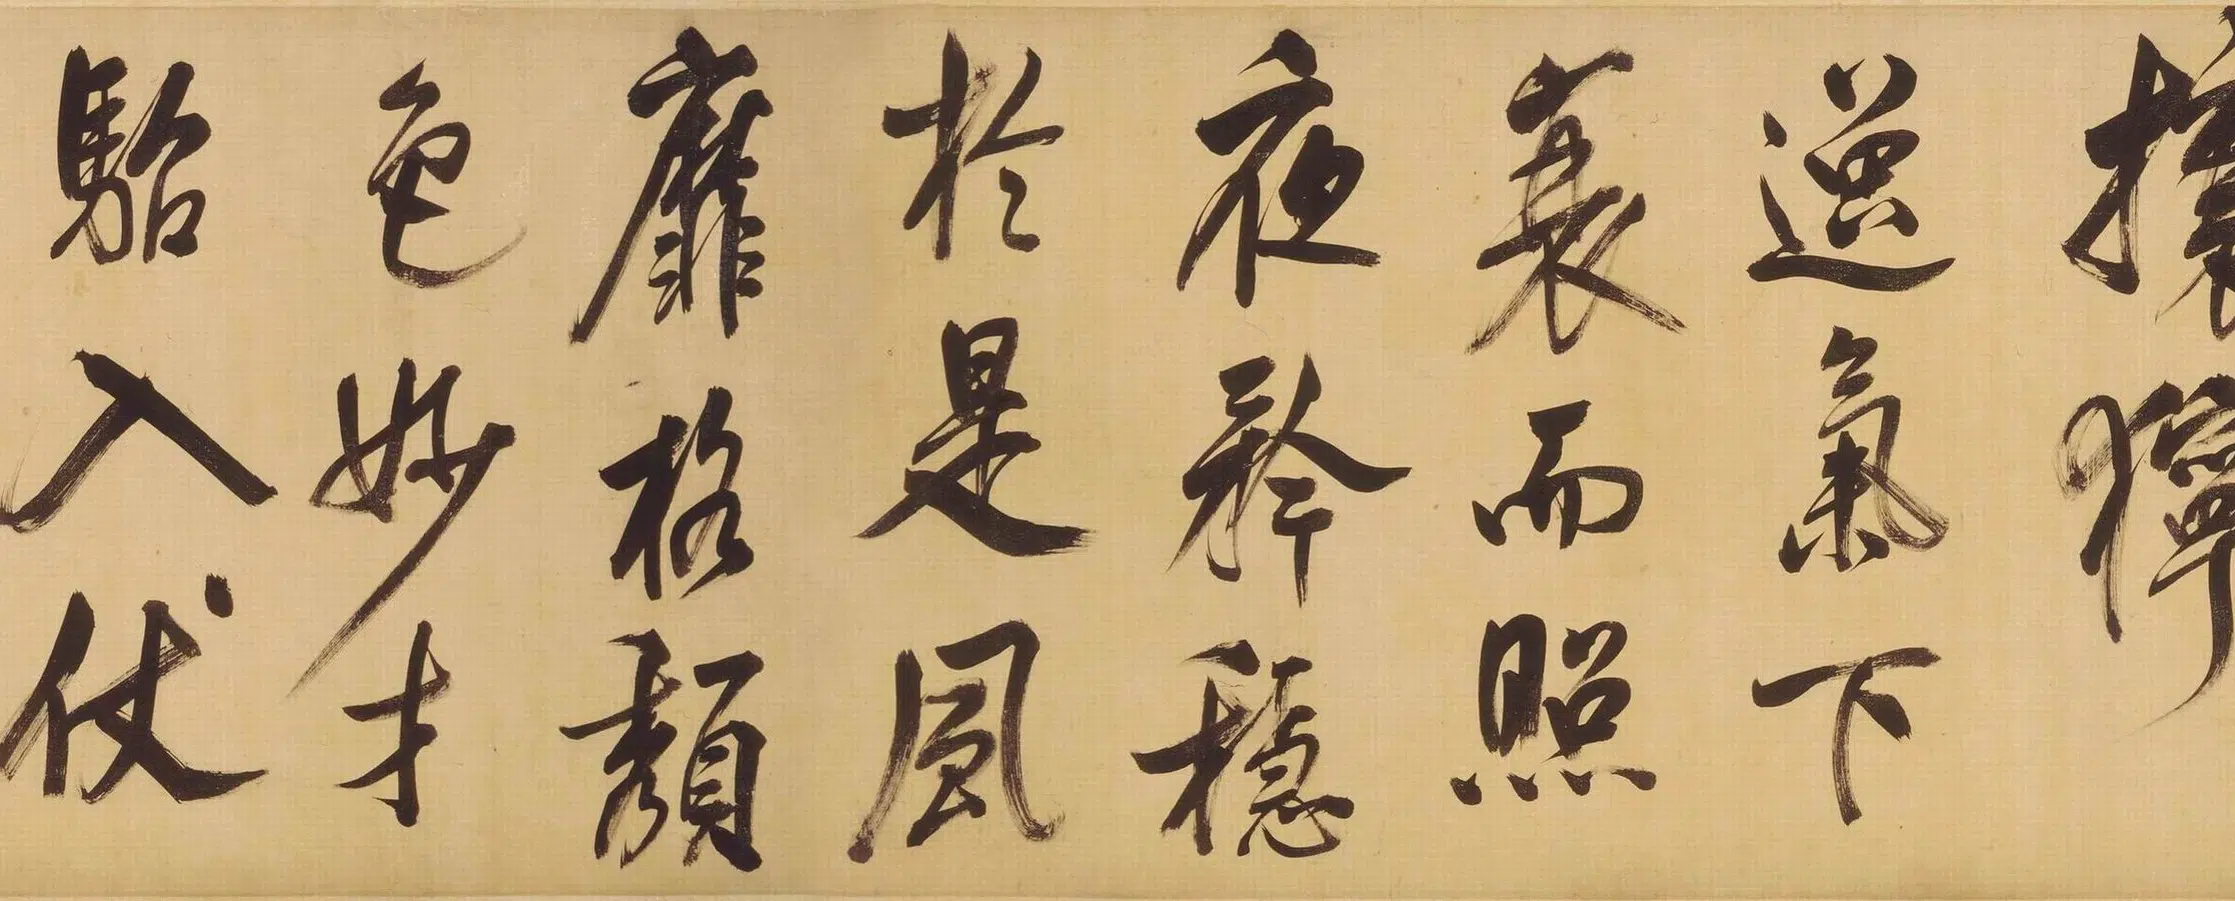 攘獰
逸氣下
衰而照
夜矜穩
於是風
靡格頹
色妙才
駘入仗